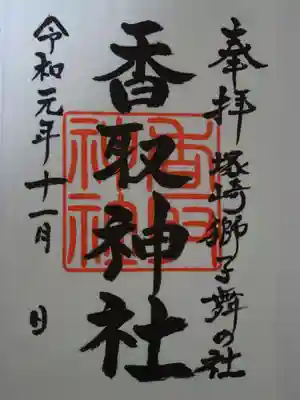 奉拝 塚崎獅子舞の社
香取神社
香取
神社
令和元年十一月 日